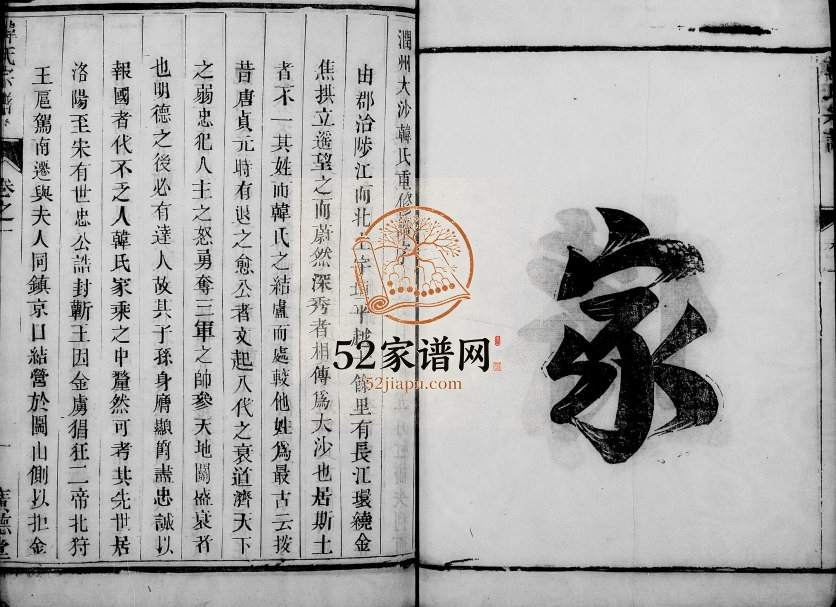 家
潤州大沙韓氏重修
由郡治陟江而北 平越 餘里有長江環繞金
焦拱立遥望之而蔚然深秀者相傳爲大沙也居斯土
者不一其姓而韓氏之結盧而處較他姓爲最古云撥
昔唐貞元時有退之愈公者文起八代之衰道濟天下
之弱忠犯人主之怒勇奪三軍之帥參天地關盛衰者
也明德之後必有達人故其子孫身膺顯爵盡忠誠以
報國者代不乏人韓氏家乘之中釐然可考其先世居
洛陽至宋有世忠公誥封蘄王因金虜猖狂二帝北狩
王扈駕南遷與夫人同鎮京口結營於圌山側以拒金
韓氏宗譜
卷之一
一
廣德堂
52家谱网
52jiapu.com